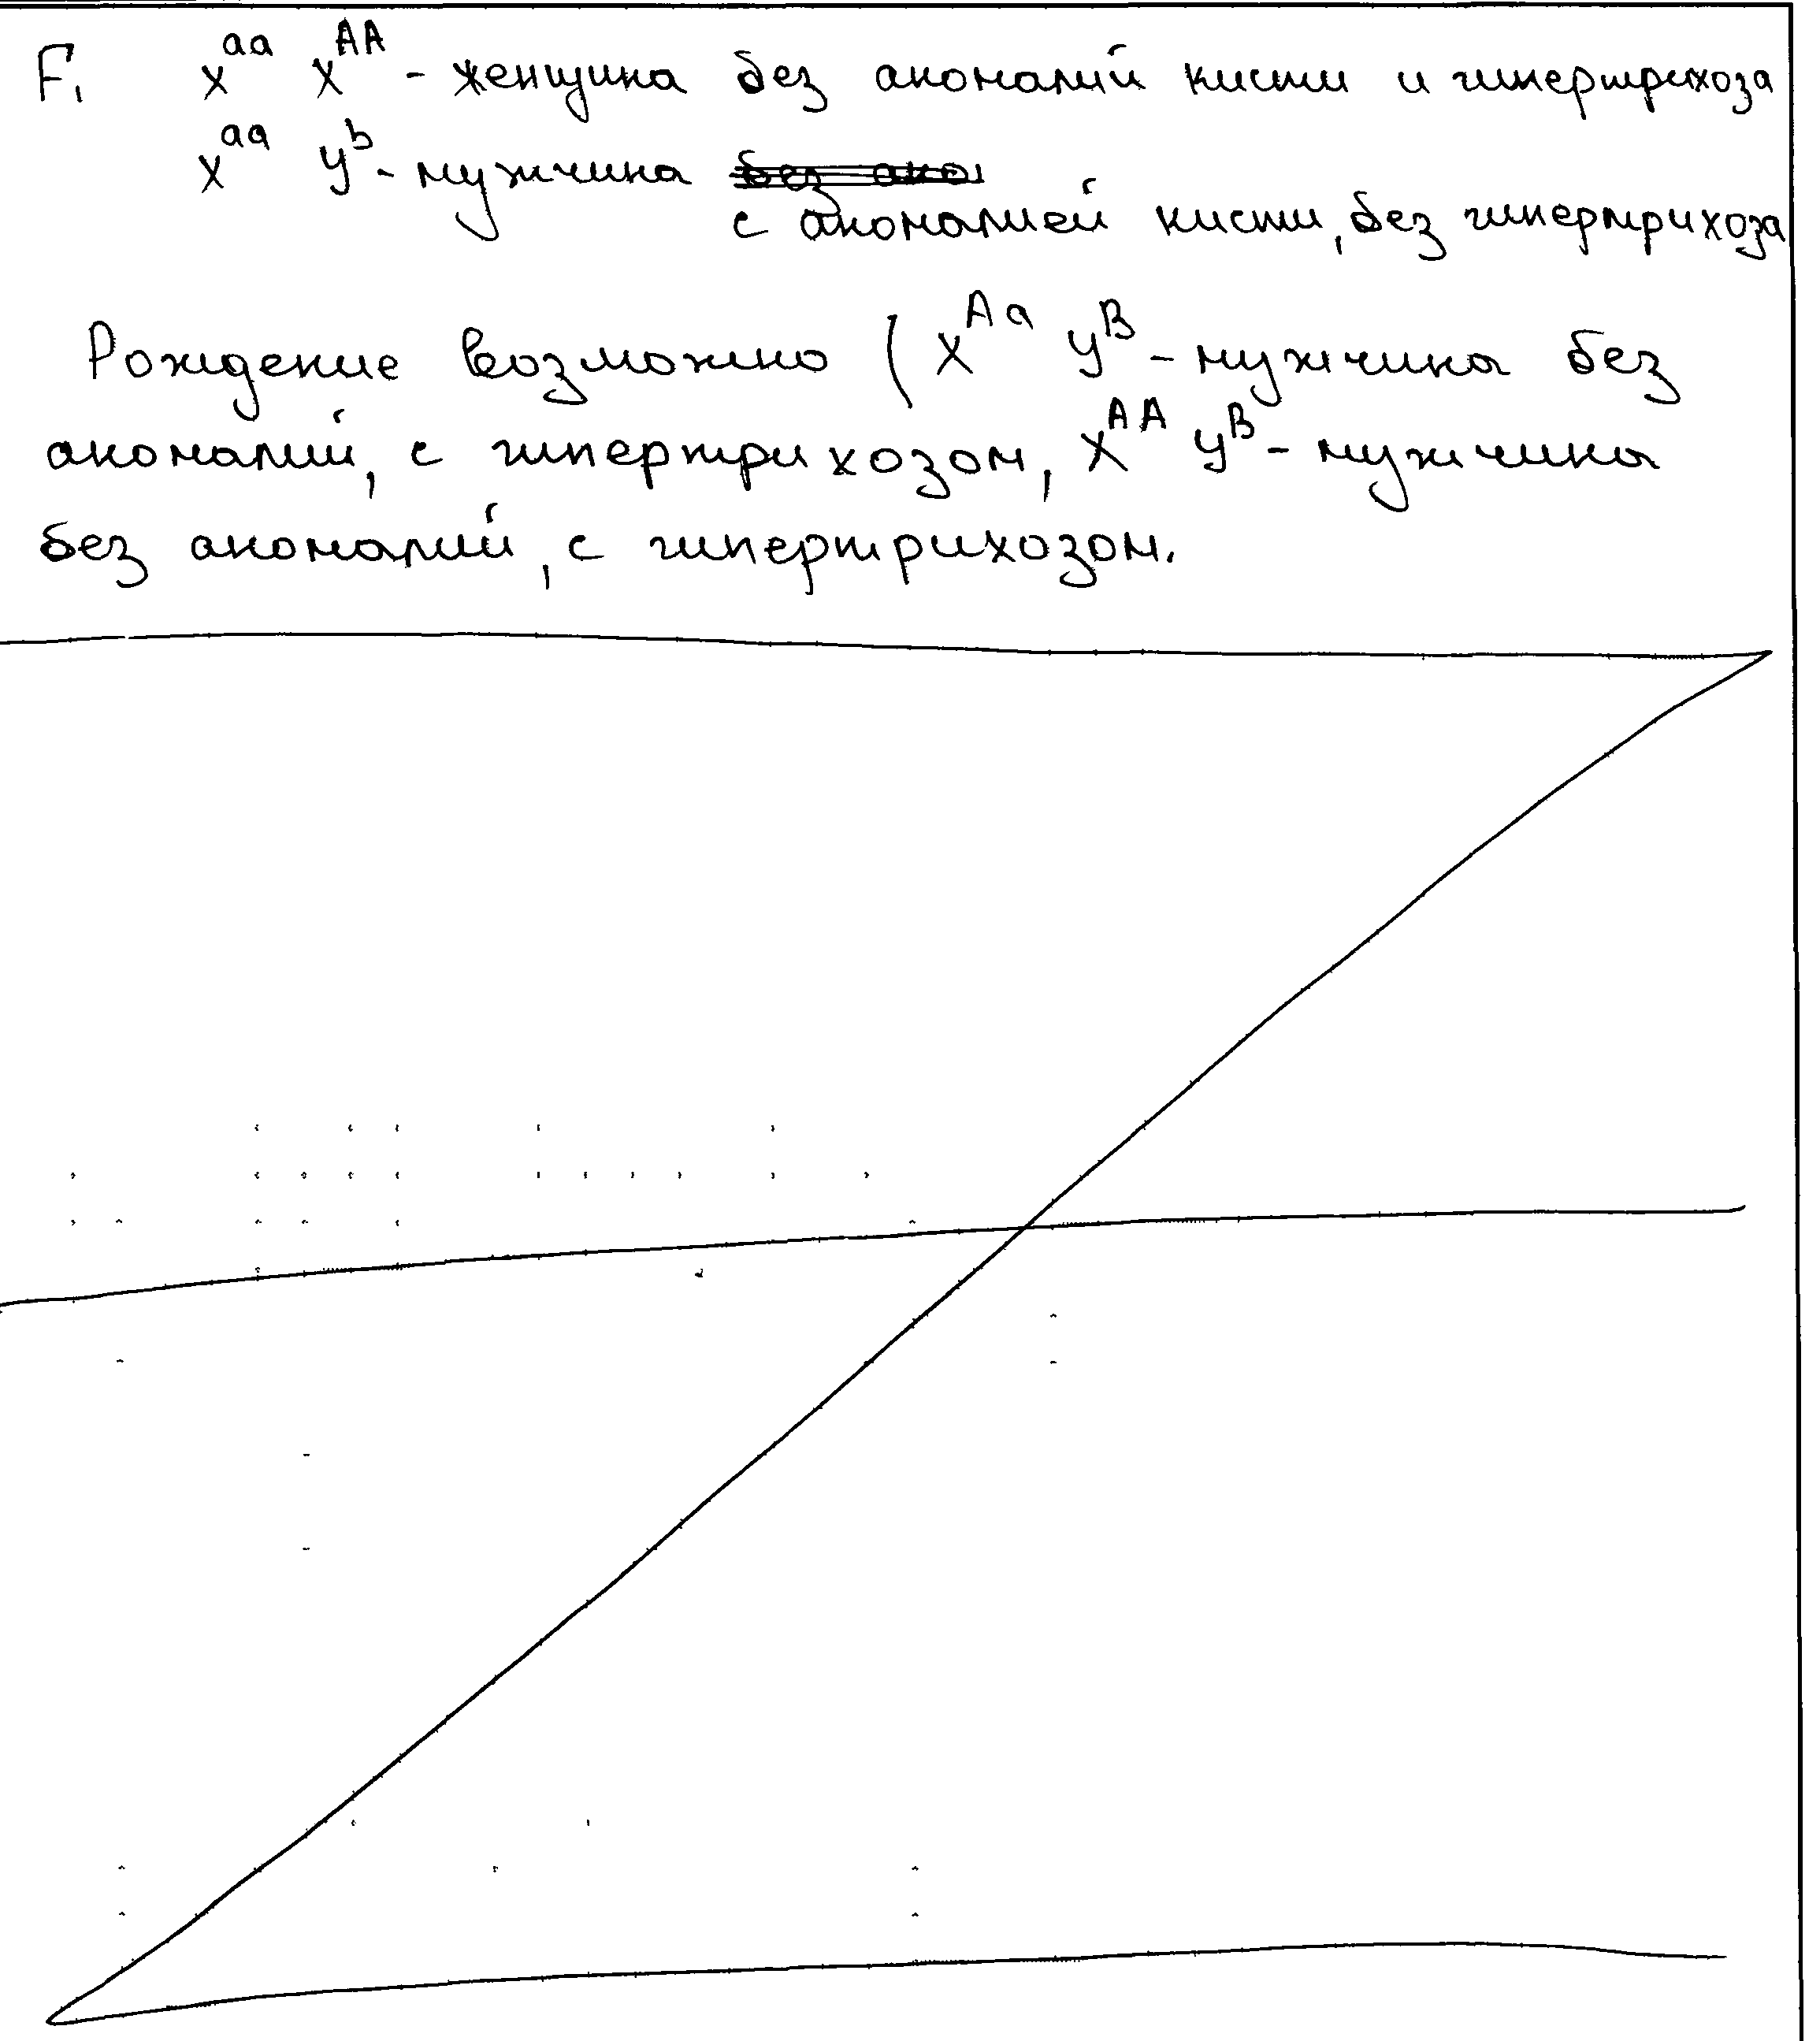 F₁ xᵃᵃ xᴬᴬ - женщина без аномалий кисти и гипертрихоза
xᵃᵃ yᵇ - мужчина без ано
с аномалией кисти, без гипертрихоза
Рождение возможно (xᴬᵃ yᴮ - мужчина без
аномалий, с гипертрихозом, xᴬᴬ yᴮ - мужчина
без аномалий, с гипертрихозом.